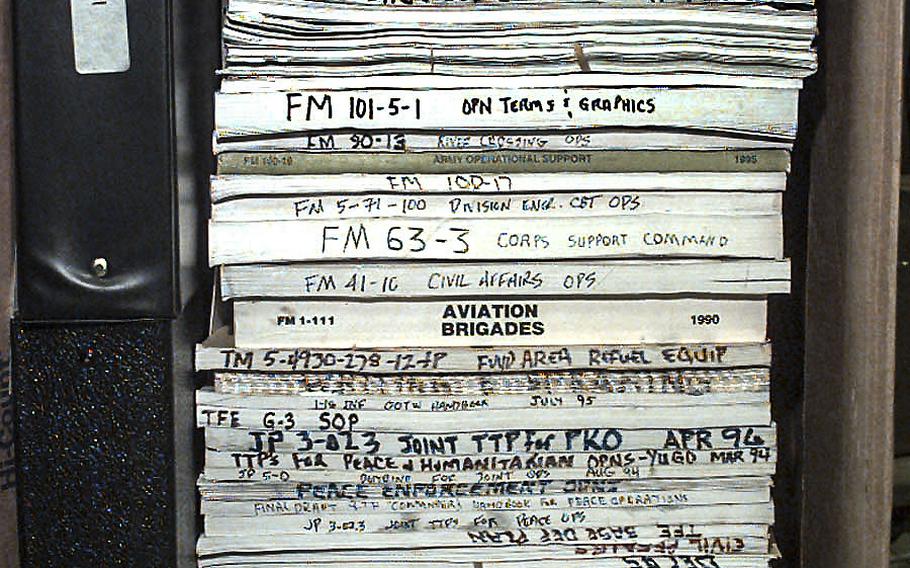 FM 101-5-1 OPN TERMS & GRAPHICS
FM 90-13 RIVER CROSSING OPS
FM 100-10 ARMY OPERATIONAL SUPPORT 1995
FM 100-17
FM 5-71-100 DIVISION ENGR. CBT OPS
FM 63-3 CORPS SUPPORT COMMAND
FM 41-10 CIVIL AFFAIRS OPS
FM 1-111 AVIATION BRIGADES 1990
TM 5-4930-278-12+P FWD AREA REFUEL EQUIP
INF GOTW HANDBOOK JULY 95
TFE G-3 SOP
JP 3-07.3 JOINT TTP for PKO APR 94
TTPs FOR PEACE & HUMANITARIAN OPNS-YUGO MAR 94
JP 5-0 FOR JOINT OPS AUG 94
PEACE ENFORCEMENT
FINAL DRAFT JTF COMMANDERS HANDBOOK FOR PEACE OPERATIONS
JP 3-07.3 JOINT TTPs FOR PEACE OPS
TFE BASE DEF PLAN
CIVIL AFFAIRS
Hi-Count